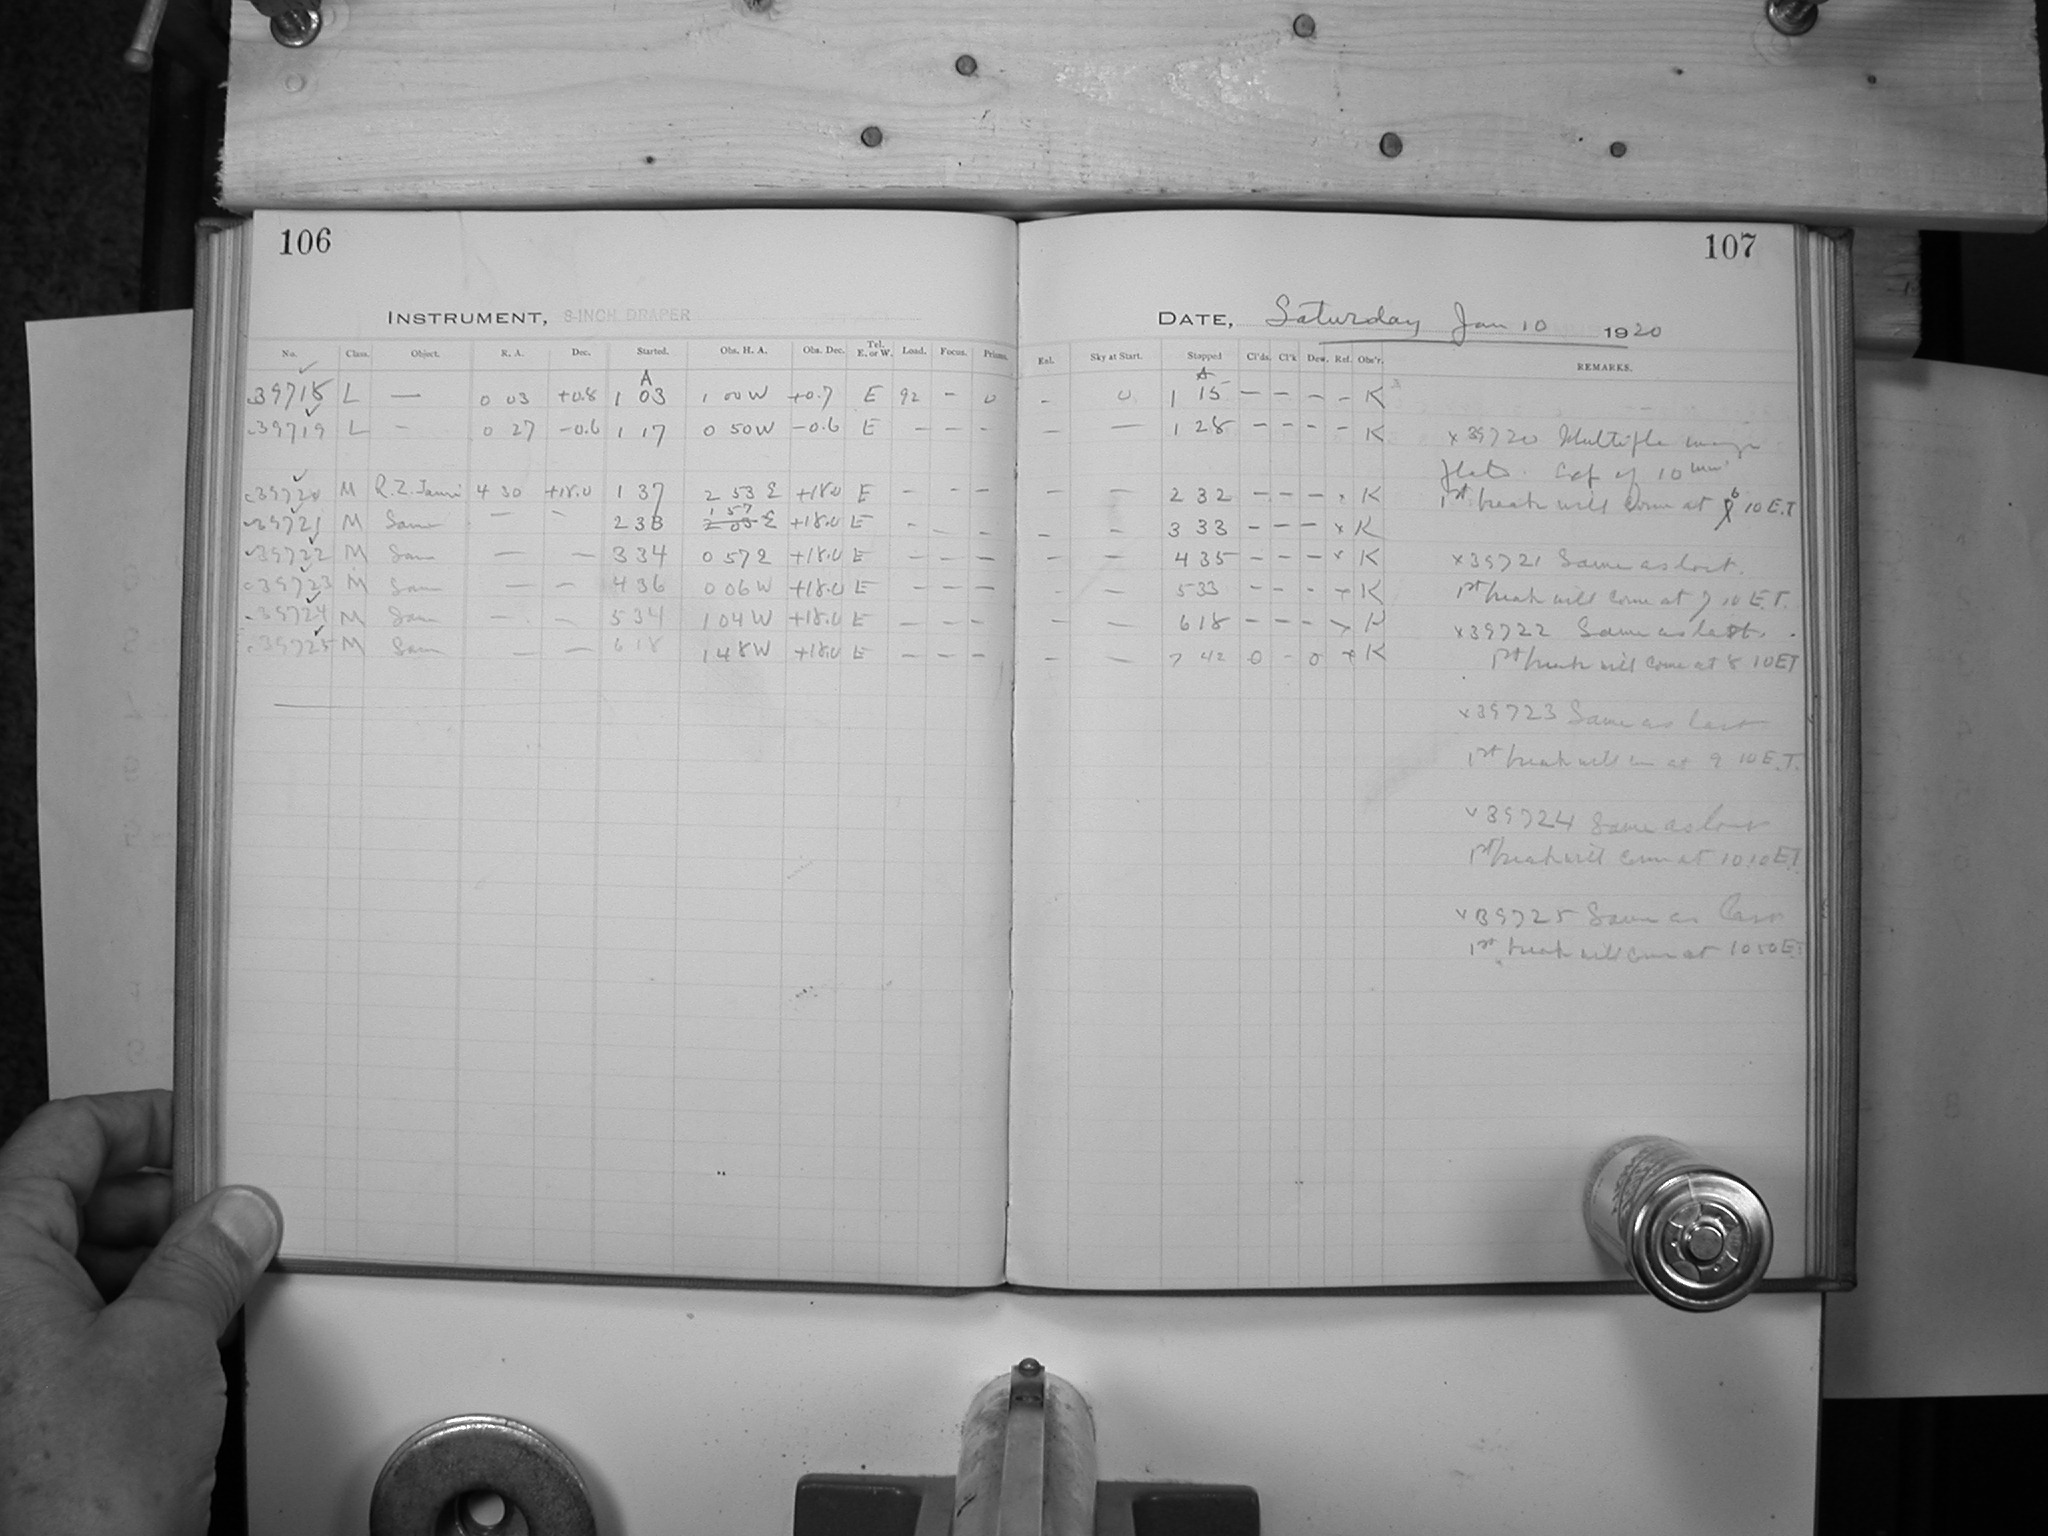 106
107
INSTRUMENT, 8-INCH DRAPER
DATE, Saturday Jan 10 1920
No. Class. Object. R. A. Dec. Started. Obs. H. A. Obs. Dec. Tel. E. or W. Load. Focus. Prisms. Exl. Sky at Start. Stopped Cl'ds. Cl'k Dew. Ref. Obs'r. REMARKS.
A A
39718 L — 0 03 +0.8 1 03 1 00 W +0.7 E 92 - 0 - 0 1 15 - - - - K
39719 L - 0 27 -0.6 1 17 0 50 W -0.6 E - - - - — 1 28 - - - - K
x 39720 Multiple
10 min
39720 M R.Z. 4 30 +18.0 1 37 2 53 E +18.0 E - - - - - 2 32 - - - . K
1st break will come at 6 10 E.T
39721 M Same - - 2 38 1 57 2 03 E +18.0 E - - - - - 3 33 - - - x K
39722 M Sam — — 3 34 0 57 E +18.0 E - - - - — 4 35 - - - x K
x 39721 Same as last.
39723 M Sam — — 4 36 0 06 W +18.0 E - - - - — 5 33 - - - x K
1st break will come at 7 10 E.T.
39724 M Sam — — 5 34 1 04 W +18.0 E - - - - — 6 18 - - - x K
x 39722 Same as last.
39725 M Sam — — 6 18 1 48 W +18.0 E - - - - — 7 42 0 - 0 x K
1st break will come at 8 10 ET
x 39723 Same as last
1st break will at 9 10 E.T.
x 39724 Same as last
1st break will come at 10 10 ET
x 39725 Same as last
1st break will come at 10 50 ET